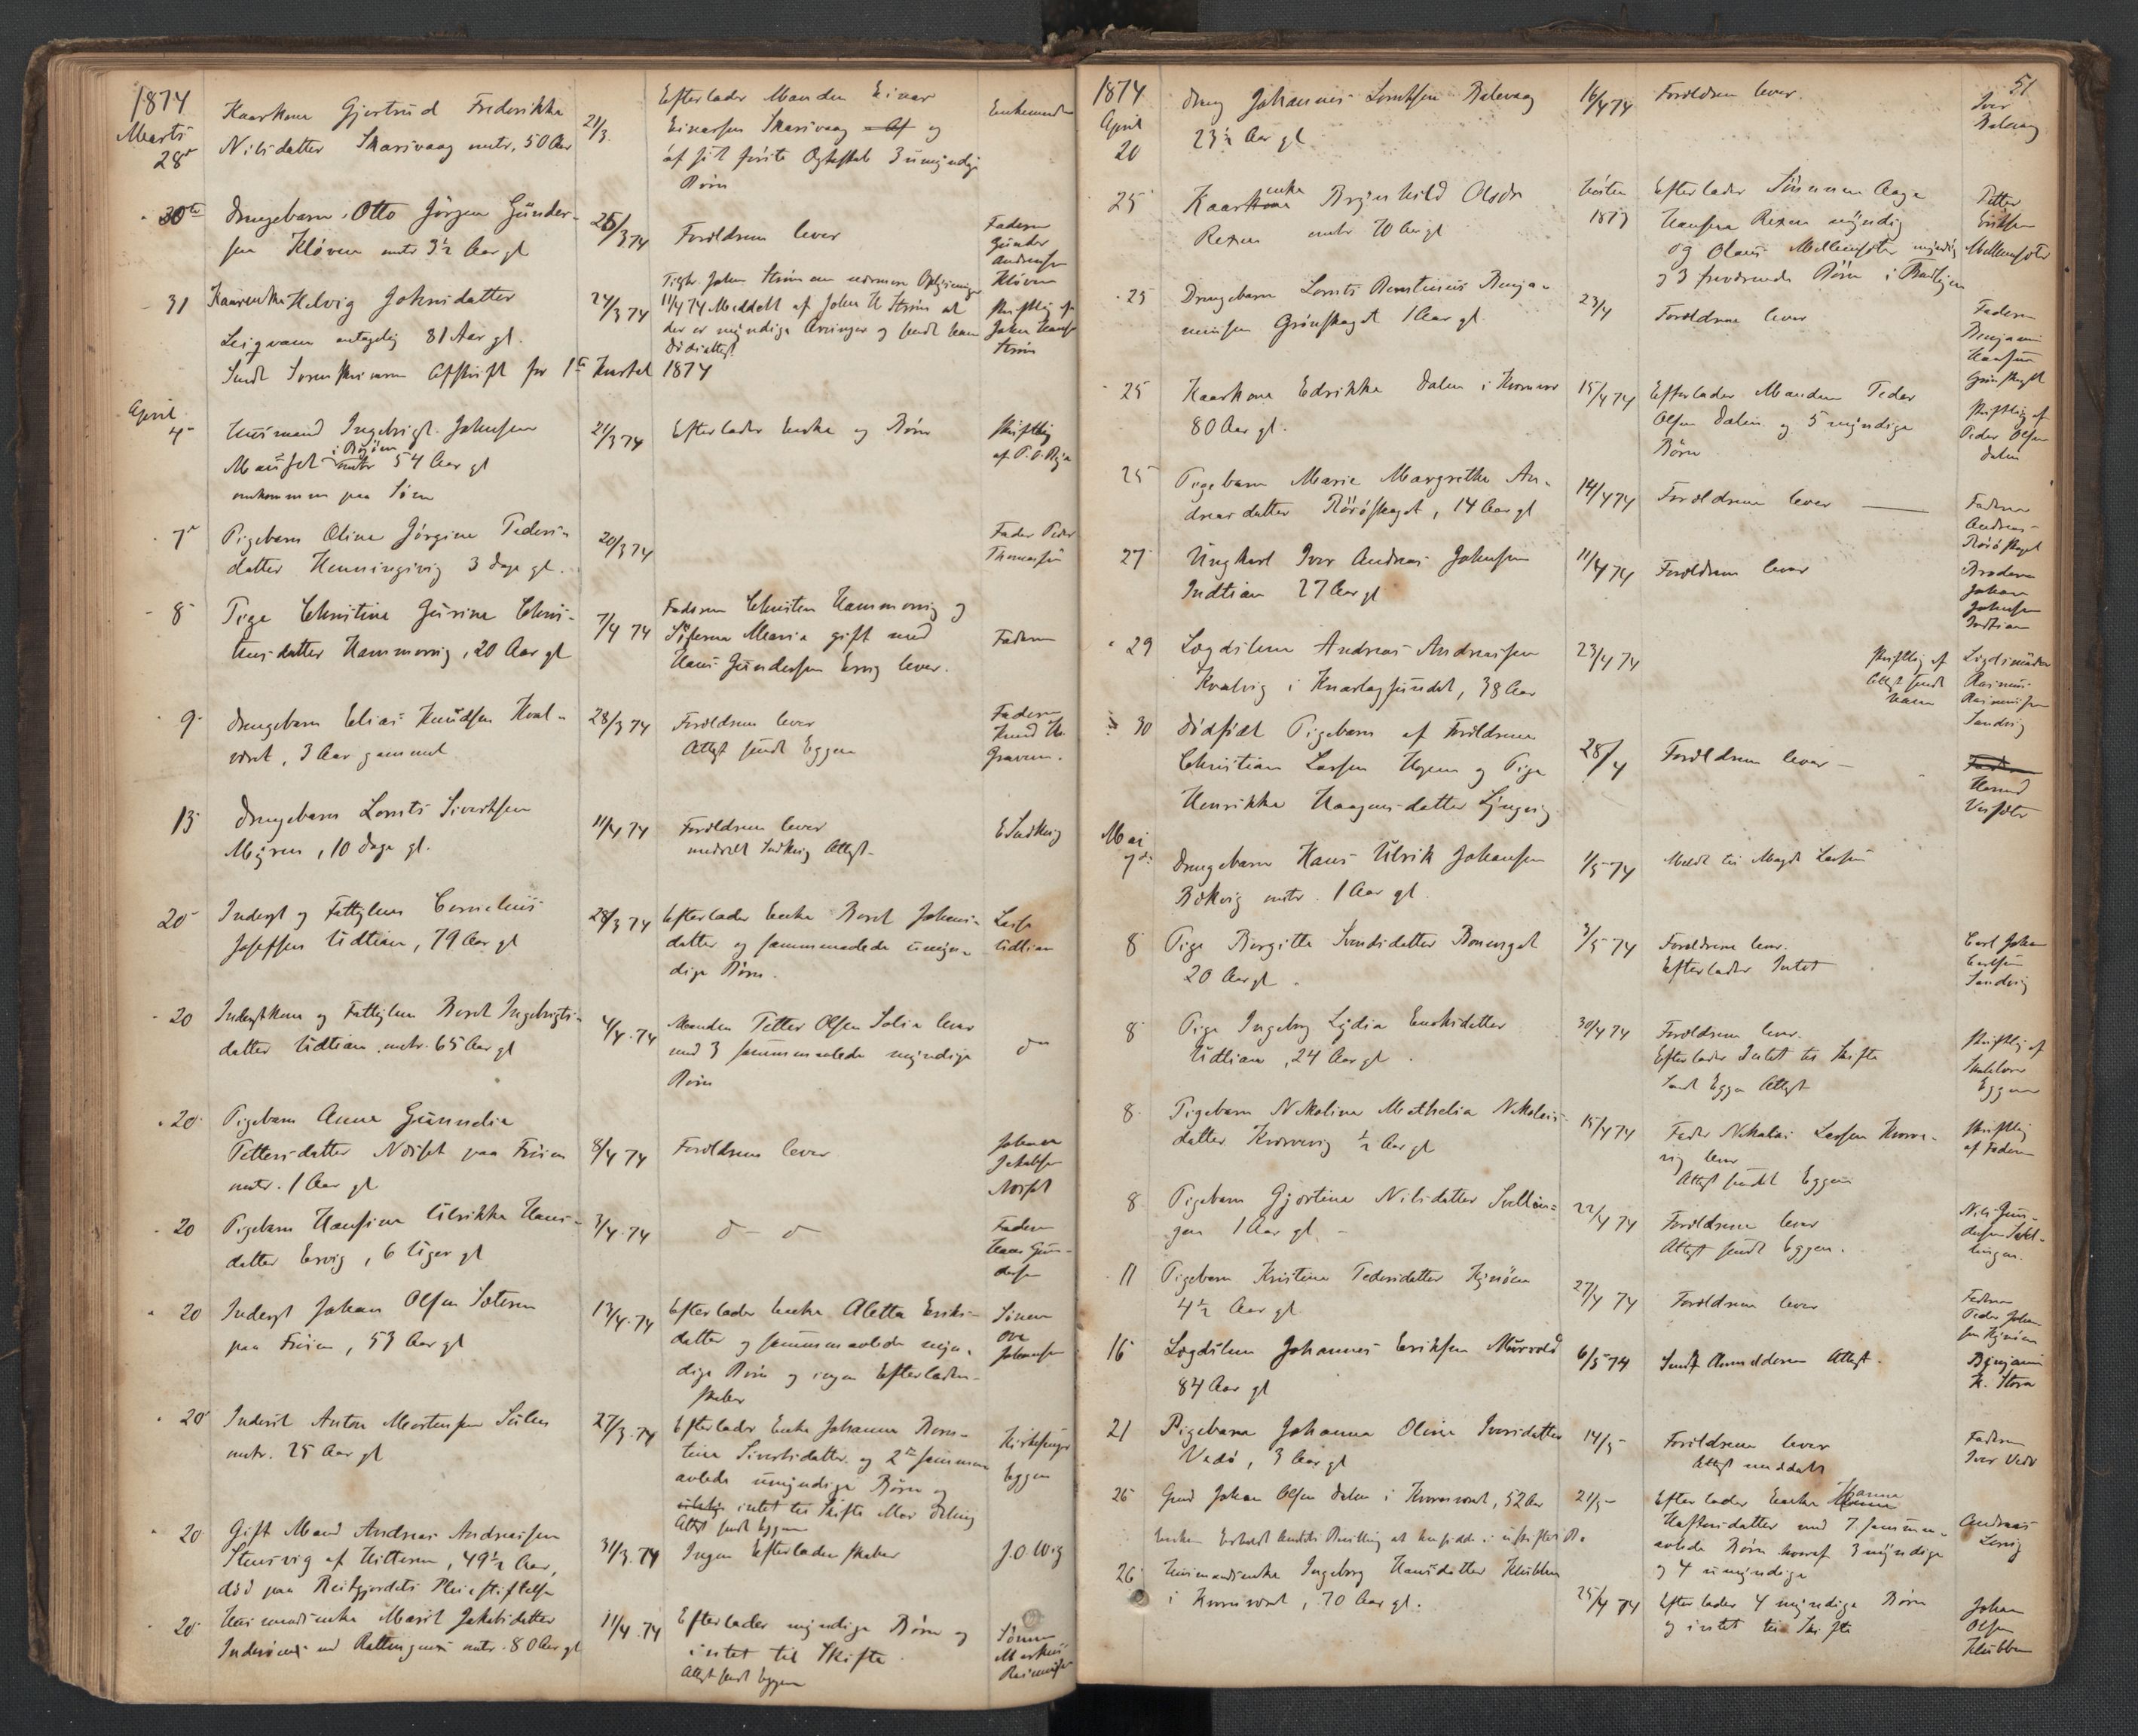 1874
Marts
28
Kaarkone Gjertrud Frederikke
Nilsdatter Skarsvaag omtr. 50 Aar
21/3
Efterlader Manden Einar
Einarsen Skarsvaag og
af sit første Ægteskab 3 umyndige
Børn
Enkemand
30te
Drengebarn Otto Jörgen Günder-
sen Kløven omtr 3½ Aar gl
26/3 74
Forældrene lever
Faderen
Günder
Andersen
Kløven
31
Kaarenke Helvig Johnsdatter
antagelig 81 Aar gl.
Sendt Sorenskriveren Afskrift for 1ste Kvartal 1874
24/3 74
11/4 74 Meddelt af John H Strøm at
der er myndige Arvinger og sendt ham
Dødsattest
Skriftlig af
John Hans
Strøm
April
4
Husmand Ingebrigt Johnsen
i
omtr 54 Aar gl
omkommen paa Søen
21/3 74
Efterlader Enke og Børn
Skriftlig
af
7
Pigebarn Oline Jörgine Peders-
datter Henningsvig 3 Dage gl.
20/3 74
Fader Peder
Thomassen
8
Pige Christine Gurine Chris-
tensdatter Hammervig, 20 Aar gl
7/4 74
Faderen Christen Hammervig og
Søsteren Maria gift med
Hans Gundersen Ervig lever.
Faderen
9
Drengebarn Elias Knudsen Kval-
været, 3 Aar gammel
28/3 74
Forældrene lever
Attest sendt Eggen
Faderen
Knud
13
Drengebarn Lorents Sivertsen
Myren, 10 Dage gl.
11/4 74
Forældrene lever
meddelt Sudkvig Attest
E Sudkvig
20
Inderst og Fattiglem Cornelius
Josefsen Udtian, 79 Aar gl
28/3 74
Efterlader Enke Beret Johans-
datter og sammenavlede umyn-
dige Børn.
Udtian
20
Inderstkone og Fattiglem Beret Ingebrigts-
datter Udtian omtr. 65 Aar gl
4/4 74
Manden Petter Olsen Solia lever
med 3 sammenavlede myndige
Børn
do
20
Pigebarn Anne Gunnelia
Pettersdatter Nesset paa Frøien
omtr. 1 Aar gl
8/4 74
Forældrene lever
Johan
Jakobsen
20
Pigebarn Hansine Ulrikke Hans-
datter Ervig, 6 Uger gl
3/4 74
d - d
Faderen
Hans Gun-
dersen
20
Inderst Johan Olsen Sæteren
paa Frøien, 53 Aar gl
13/4 74
Efterlader Enke Aletta Eriks-
datter og sammenavlede myn-
dige Børn og ingen Efterladen-
skaber
Sønnen
Ove
Johansen
20
Inderst Anton Mortensen Sulen
omtr. 25 Aar gl
27/3 74
Efterlader Enke Johanna Beren-
tine Sivertsdatter og 2 sammen
avlede umyndige Børn og
intet til Skifte eller Deling
Attest sendt Eggen
Kirkesanger
Eggen
20
Gift Mand Andreas Andreassen
Stensvig af Hitteren, 49½ Aar,
død paa Reitgjerdets Pleiestiftelse
31/3 74
Ingen Efterladenskaber
J.O Wig
20
Husmandsenke Marit Jakobsdatter
omtr. 80 Aar gl
11/4 74
Efterlader myndige Børn og
intet til Skifte
Attest sendt Eggen
Sønnen
Markus
51
1874
April
20
Dreng Johannes Lorentsen Balevaag
23½ Aar gl
16/4 74
Forældrene lever.
Iver
Balevaag
25
Kaarenke Brynhild Olsdr
Rexen omtr 70 Aar gl
Høsten
1873
Efterlader Sønnerne Aage
Hansen Rexen myndig
og Olaus Mellemsæter myndig
og 3 fraværende Børn i
Petter
Eriksen
Mellemsæter
25
Drengebarn Lorents Berntinius Benja-
minsen Grønskaget 1 Aar gl.
23/4
Forældrene lever
Faderen
Benjamin
Hansen
Grønskaget
25
Kaarkone Edrikke Dalen i Kverver
80 Aar gl.
15/4 74
Efterlader Manden Peder
Olsen Dalen og 5 myndige
Børn
Skriftlig af
Peder Olsen
Dalen
25
Pigebarn Marie Margrethe An-
dreasdatter Rörøskaget, 14 Aar gl
14/4 74
Forældrene lever
Faderen
Andreas
Rörøskaget
27
Ungkarl Iver Andreas Johnsen
Indtian 27 Aar gl
11/4 74
Forældrene lever
Broderen
Johan
Johnsen
Indtian
29
Lægdslem Andreas Andreassen
Kvalvig i Knarlagsundet, 38 Aar
23/4 74
Skriftlig af
Attest sendt
ham
Lægdsmanden
Rasmus
Rasmussen
Sandvig
30
Dødfødt Pigebarn af Forældrene
Christian Larsen Hogen og Pige
Henrikke Haagensdatter Lyngvig
28/4
Forældrene lever
Mai
7de
Drengebarn Hans Ulrik Johansen
Bækvig omtr. 1 Aar gl.
1/5 74
8
Pige Birgitte Svendsdatter
20 Aar gl.
3/5 74
Forældrene lever.
Efterlader Intet
Carl Johan
Carlsen
Sandvig
8
Pige Ingeborg Lydia Enoksdatter
Udtian, 24 Aar gl.
30/4 74
Forældrene lever.
Efterlader Intet til Skifte
Sendt Eggen Attest
Skriftlig af
Skolelærer
Eggen
8
Pigebarn Nikoline Methelia Nikolais-
datter Kverrevig ½ Aar gl
15/4 74
Fader Nikolai Larsen Kverre-
vig lever
Attest sendt Eggen
Skriftlig
af Faderen
8
Pigebarn Gjertine Nilsdatter Sætlin-
gen 1 Aar gl.
22/4 74
Forældrene lever
Attest sendt Eggen.
Nils Gun-
dersen Sætl-
lingen
11
Pigebarn Kristine Pedersdatter Hjerøen
4½ Aar gl
27/4 74
Forældrene lever
Faderen
Peder Johan-
sen Hjerøen
16
Lægdslem Johannes Eriksen Mürvold
84 Aar gl
6/5 74
Sendt Anmelderen Attest.
Benjamin
K. Storø
21
Pigebarn Johanna Oline Iversdatter
Vedø, 3 Aar gl
14/5
Forældrene lever
Attest meddelt
Faderen
Iver Vedø
26
Gmd Johan Olsen Dalen i Kverrevatnet, 52 Aar
21/5
Efterlader Enke Hanna
Haftorsdatter med 7 sammen-
avlede Børn hvoraf 3 myndige
og 4 umyndige
Andreas
Lervig
Enken Erholdt Amtets Bevilling at hensidde i uskiftet Bo
26
Husmandsenke Ingeborg Hansdatter Klubben
i, 70 Aar gl.
25/4 74
Efterlader 4 myndige Børn
og intet til Skifte
Johan
Olsen
Klubben